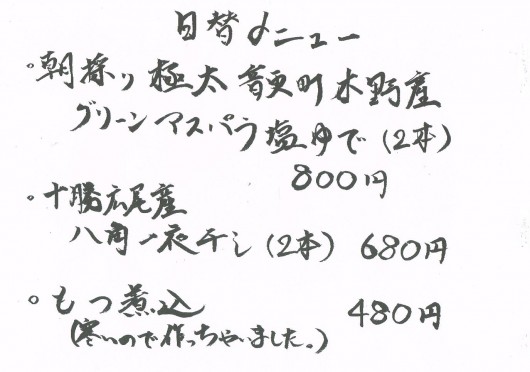 日替メニュー
・朝採り極太音更町木野産
グリーンアスパラ塩ゆで(2本)
800円
・十勝広尾産
八角一夜干し(2本) 680円
・もつ煮込 480円
(寒いので作っちゃいました。)